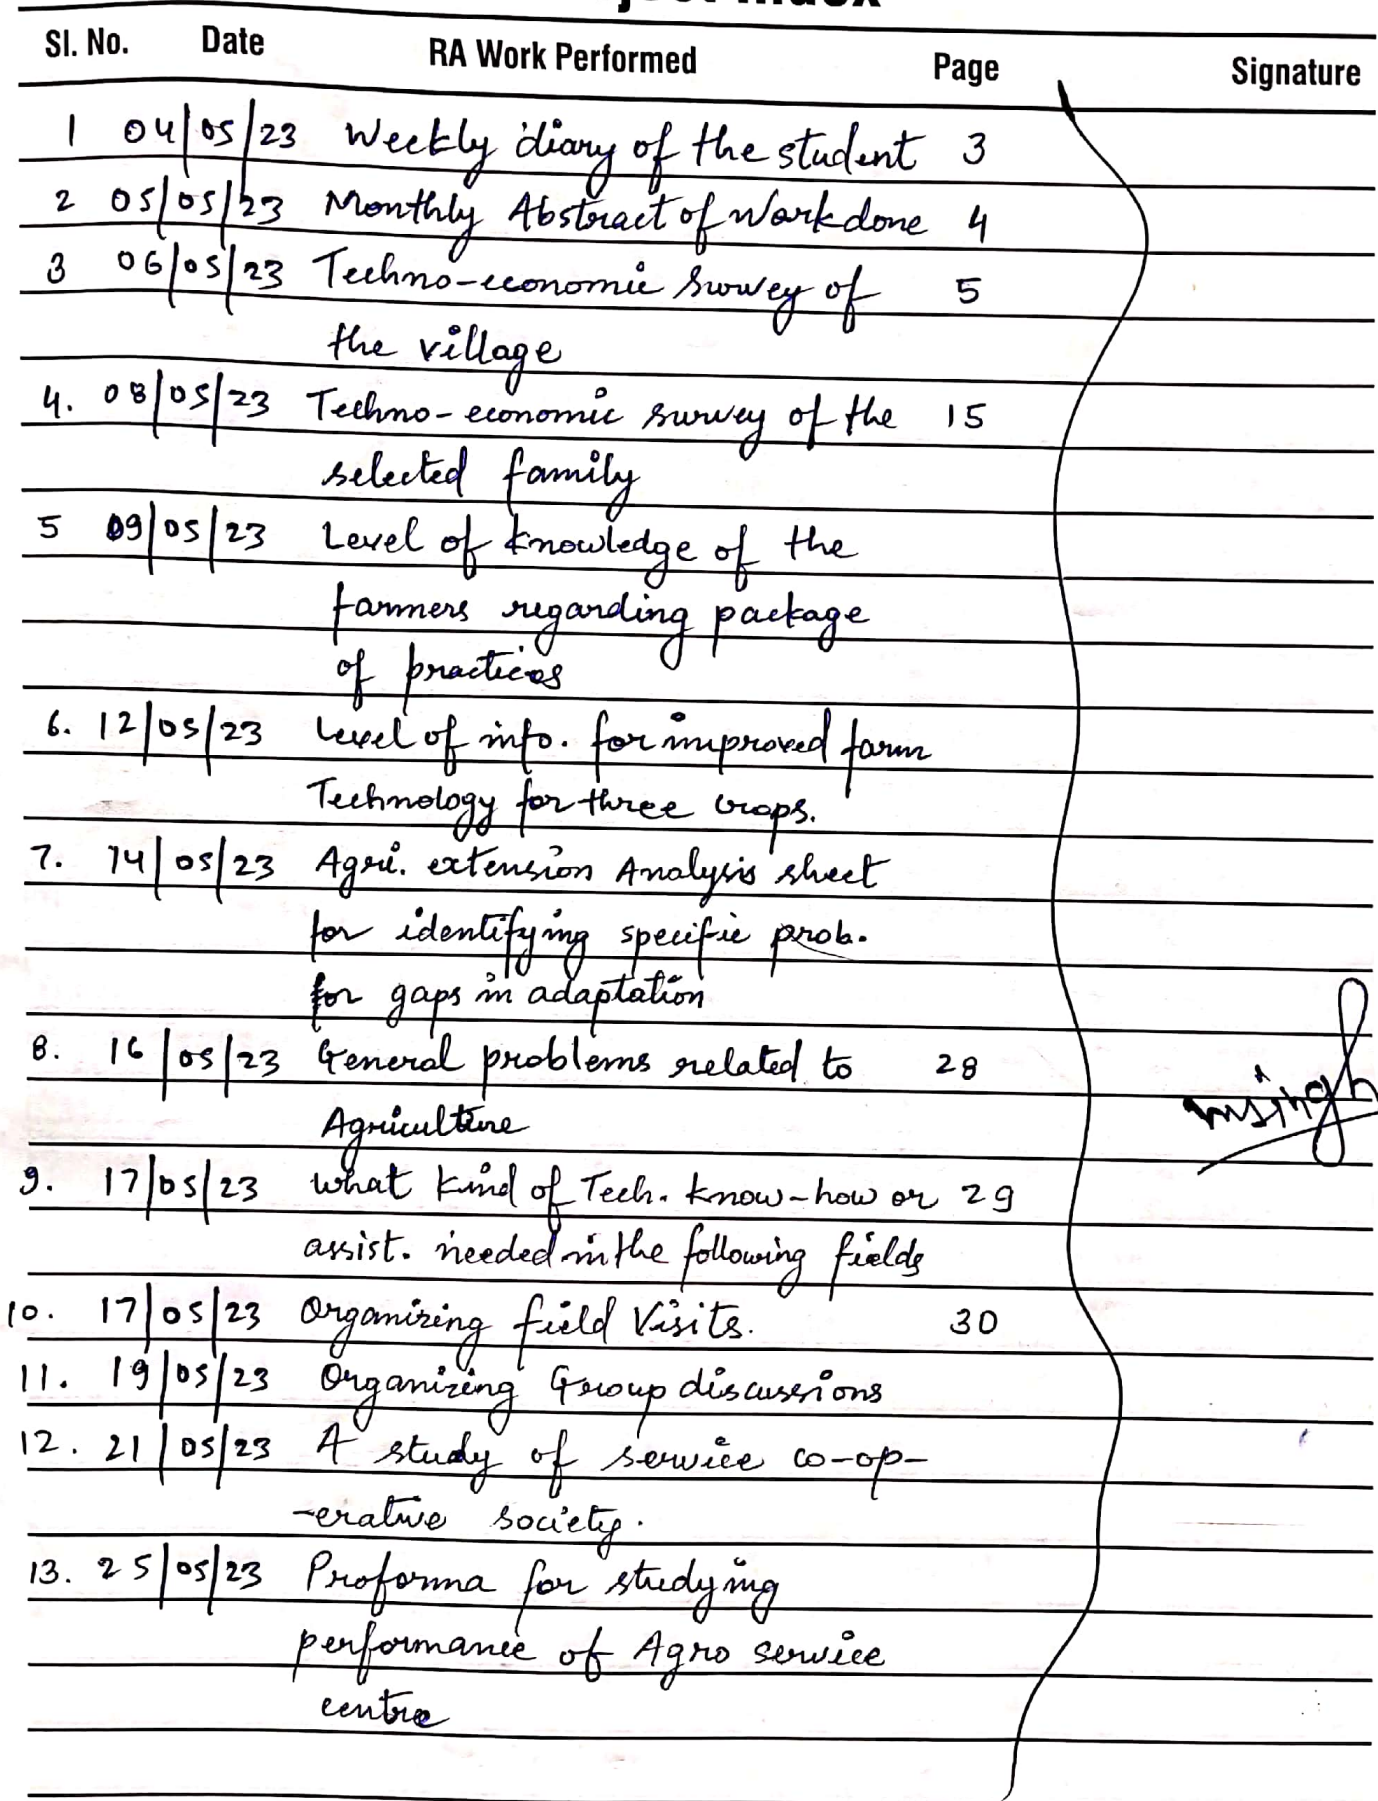 Sl. No. Date RA Work Performed Page Signature
1 04/05/23 Weekly diary of the student 3
2 05/05/23 Monthly Abstract of Work done 4
3 06/05/23 Techno-economic Survey of 5
the village
4. 08/05/23 Techno-economic survey of the 15
selected family
5 09/05/23 Level of knowledge of the
farmers regarding package
of practices
6. 12/05/23 Level of info. for improved farm
Technology for three crops.
7. 14/05/23 Agri. extension Analysis sheet
for identifying specific prob.
for gaps in adaptation
8. 16/05/23 General problems related to 28
Agriculture
9. 17/05/23 what kind of Tech. know-how or 29
assist. needed in the following fields
10. 17/05/23 Organizing field Visits. 30
11. 19/05/23 Organizing Group discussions
12. 21/05/23 A study of service co-op-
-erative society.
13. 25/05/23 Proforma for studying
performance of Agro service
centre